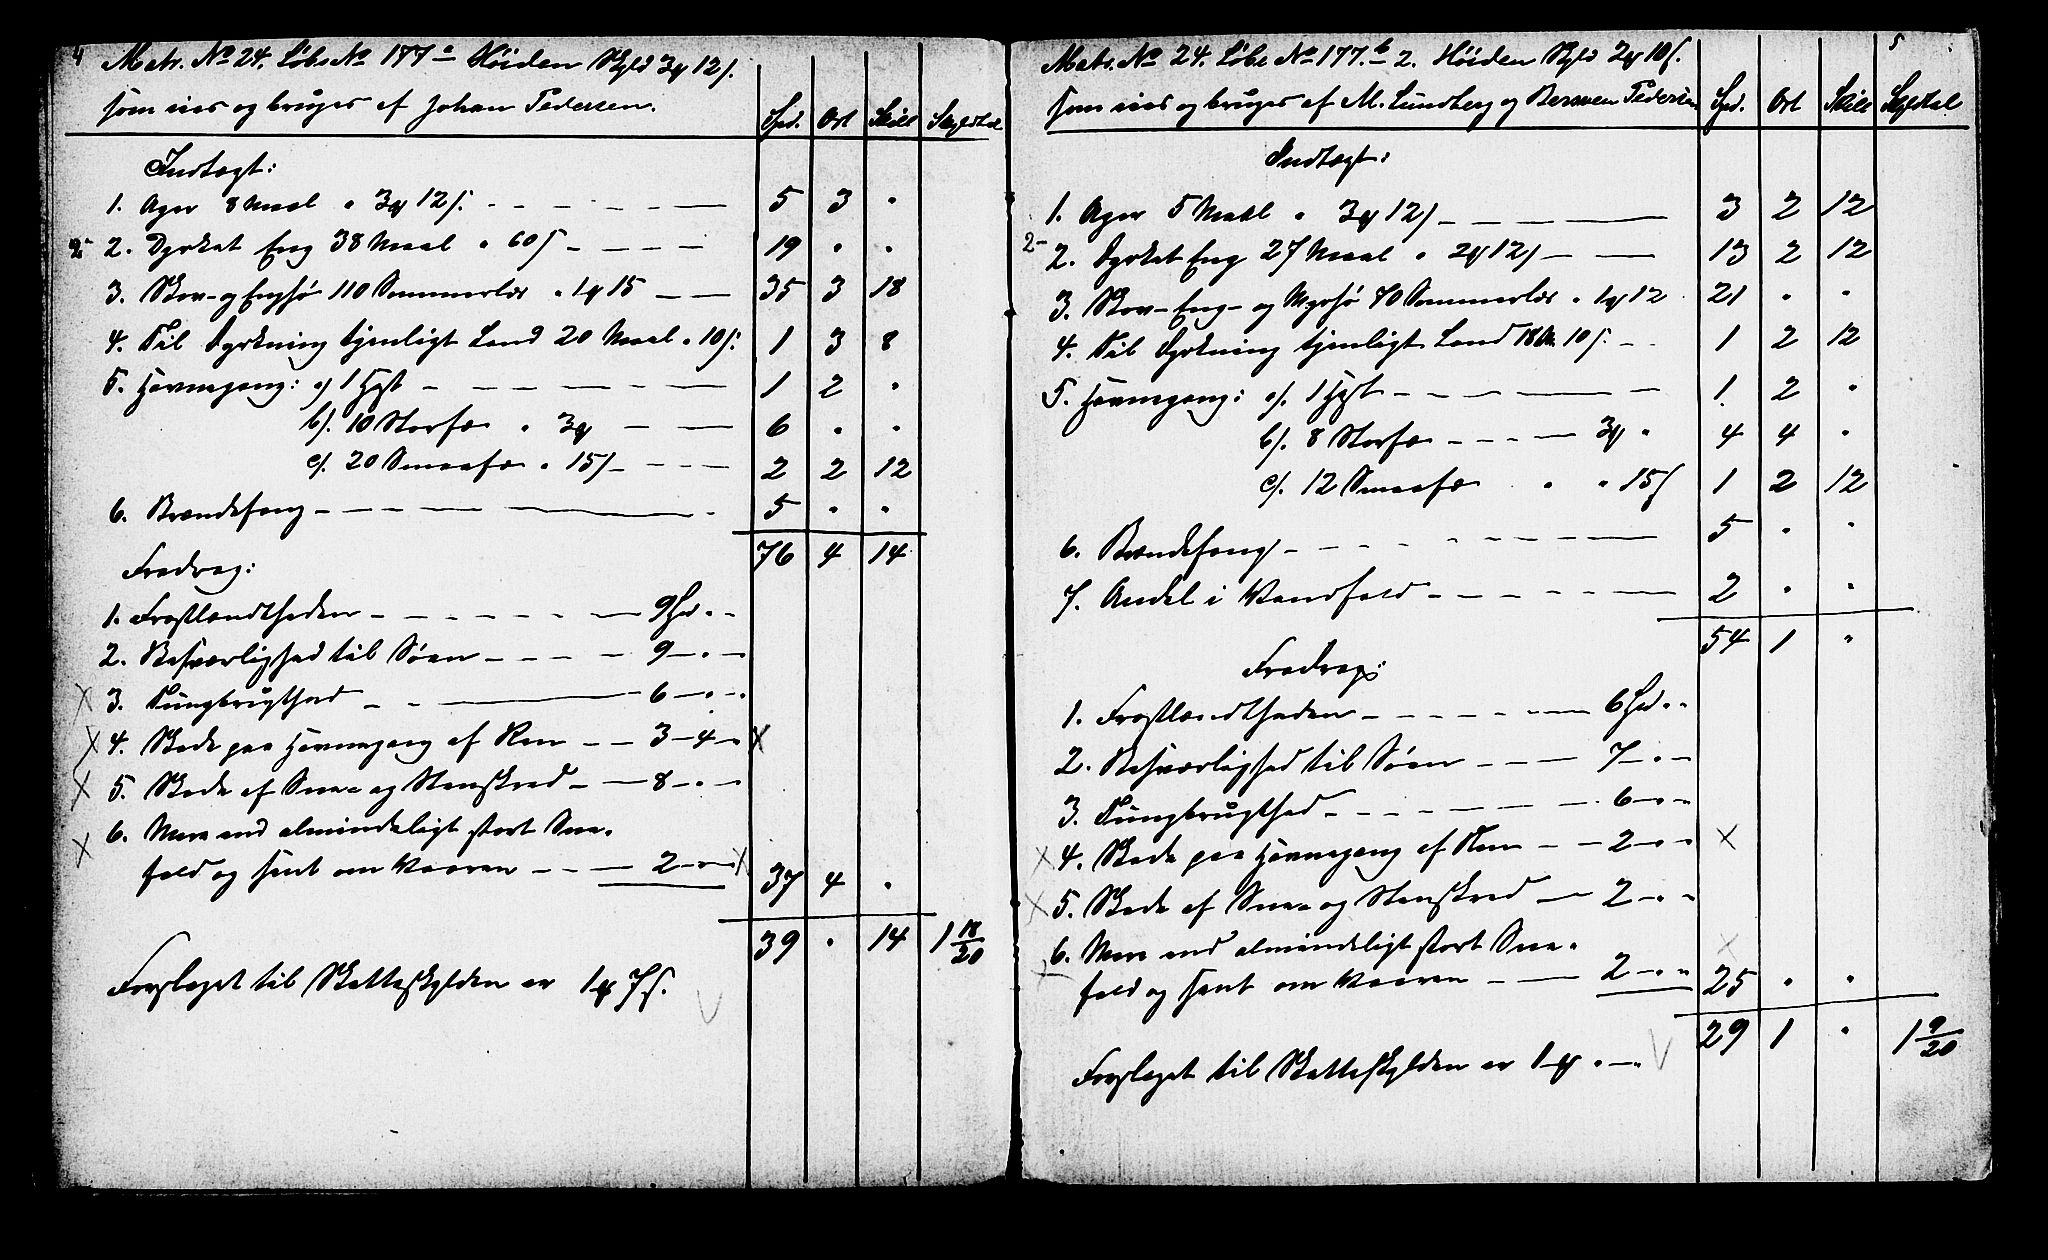 4
Matr. No 24. Løbs No 177 a Høiden Skyld 3 ort 12 s.
som eies og bruges af Johan Pedersen.
Spd. Ort Skill Skyldtal
Indtægt:
1. Ager 8 Maal " 3 ort 12 s. 5 3 "
2. Dyrket Eng 38 Maal " 60 s 19 " "
3. Skov- og Enghø 110 Sommerlæs " 1 ort 15 35 3 18
4. Til Dyrkning tjenligt Land 20 Maal " 10 s. 1 3 8
5. Havnegang: a/ 1 Hest 1 2 "
b/. 10 Storfæ " 3 ort 6 " "
c/. 20 Smaafæ " 15 s 2 2 12
6. Brændefang 5 " "
76 4 14
Fradrag:
1. Frostlændtheden 9 Spd " "
2. Besværlighed til Søen 9 - " - "
3. Tungbrugthed 6 - " - "
4. Skade paa Havnegang af Ren 3 - 4 - "
5. Skade af Snee- og Stenskred 8 - " - "
6. Mere end almindeligt stort Sne-
fald og sent om Vaaren 2 - " - " 37 4 "
39 " 14 1 18/20
Forslaget til Skatteskylden er 1 ort 7 s.
5
Matr. No 24. Løbe No 177. b 2. Høiden Skyld 2 ort 10 s.
som eies og bruges af M. Lundberg og Bersven Pedersen
Spd. Ort Skill Skyldtal
Indtægt:
1. Ager 5 Maal " 3 ort 12 s 3 2 12
2. Dyrket Eng 27 Maal " 2 ort 12 s 13 2 12
3. Skov- Eng- og Myrhø 70 Sommerlæs " 1 ort 12 21 " "
4. Til Dyrkning tjenligt Land 18 M. 10 s. 1 2 12
5. Havnegang: a/. 1 Hest 1 2 "
b/. 8 Storfæ 3 ort " 4 4 "
c/. 12 Smaafæ " " 15 s 1 2 12
6. Brændefang 5 " "
7. Andel i Vandfald 2 " "
54 1 "
Fradrag:
1. Frostlændtheden 6 Spd " "
2. Besværlighed til Søen 7 - " -
3. Tungbrugthed 6 - " - "
4. Skade paa Havnegang af Ren 2 - " - "
5. Skade af Snee- og Stenskred 2 - " - "
6. Mere end almindeligt stort Sne-
fald og sent om Vaaren 2 - " - " 25 " "
29 1 " 1 9/20
Forslaget til Skatteskylden er 1 ort " - "